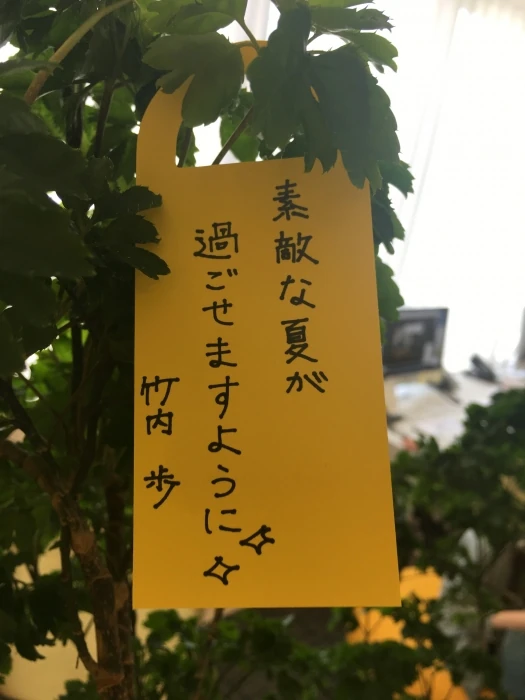 素敵な夏が
過ごせますように
竹内 歩